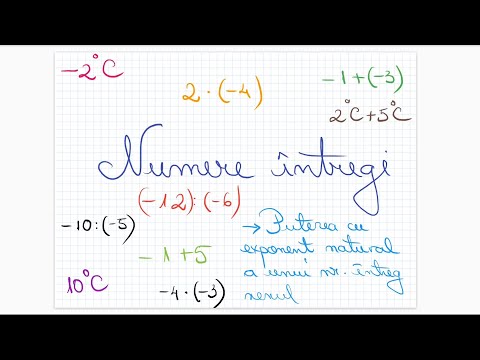 -2°C
2·(-4)
-1+(-3)
2°C+5°C
Numere întregi
(-12):(-6)
-10:(-5)
→ Puterea cu
exponent natural
a unui nr. întreg
-1+5
10°C
-4·(-3)